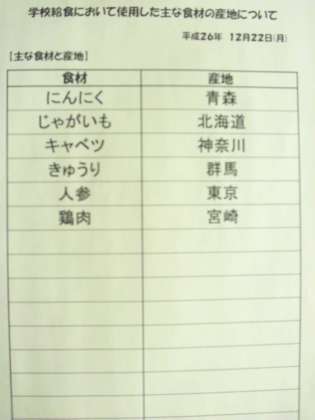 学校給食において使用した主な食材の産地について
平成26年 12月22日(月)
【主な食材と産地】
食材 産地
にんにく 青森
じゃがいも 北海道
キャベツ 神奈川
きゅうり 群馬
人参 東京
鶏肉 宮崎